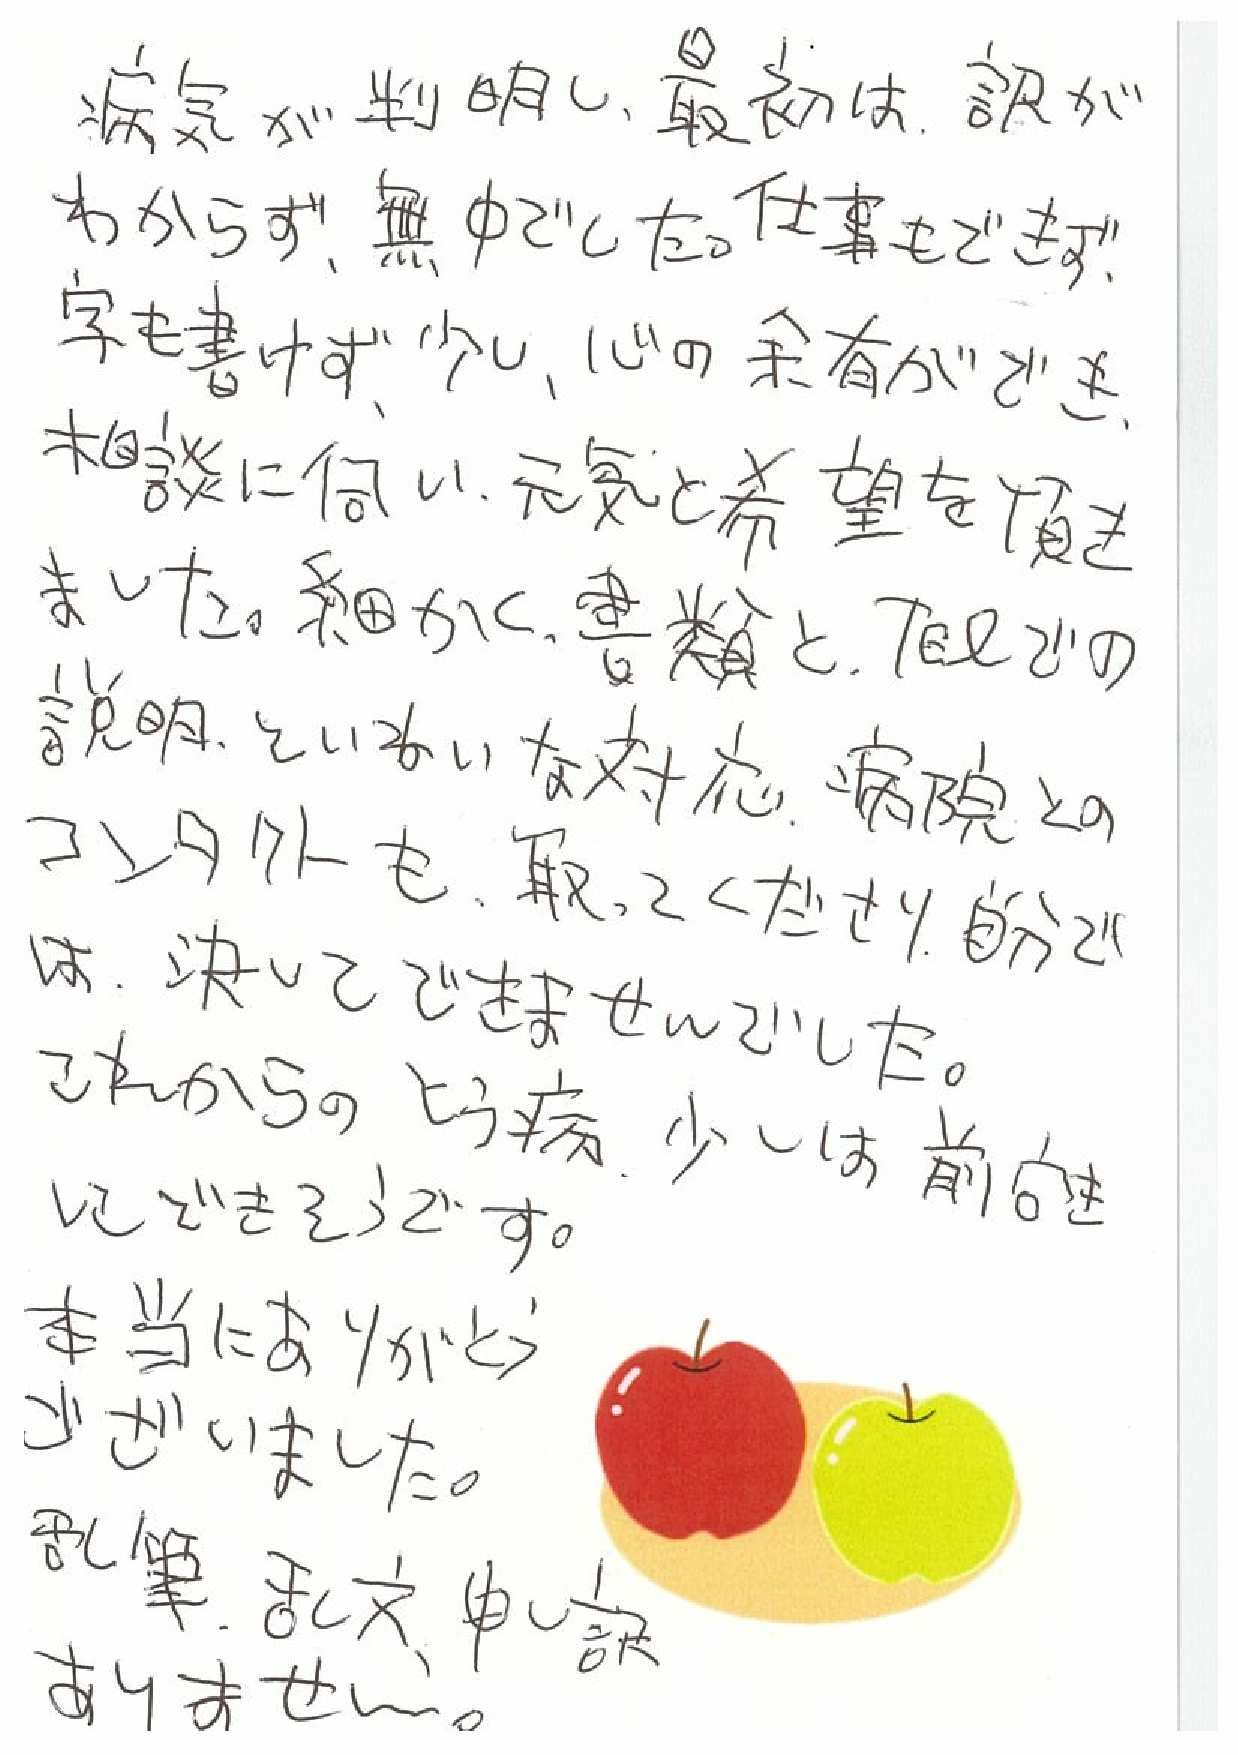 病気が判明し、最初は、訳が
わからず、無中でした。仕事もできず、
字も書けず、少し、心の余有ができ、
相談に伺い、元気と希望を頂き
ました。細かく、書類と、TELでの
説明、ていねいな対応、病院との
コンタクトも、取ってくださり、自分で
は、決してできませんでした。
これからのとう病、少しは前向き
にできそうです。
本当にありがとう
ございました。
乱筆、乱文、申し訳
ありません。